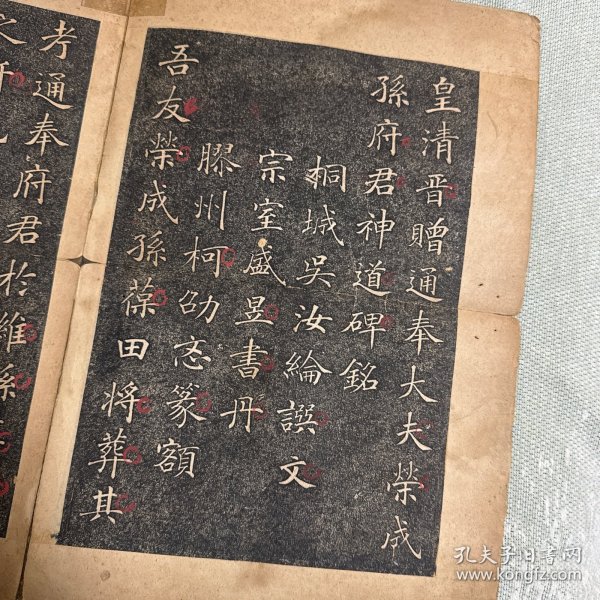 皇清晉贈通奉大夫榮成
孫府君神道碑銘
桐城吳汝綸譔文
宗室盛昱書丹
膠州柯劭忞篆額
吾友榮成孫葆田将葬其
考通奉府君於維孫
孔夫子旧书网
www.kongfz.com